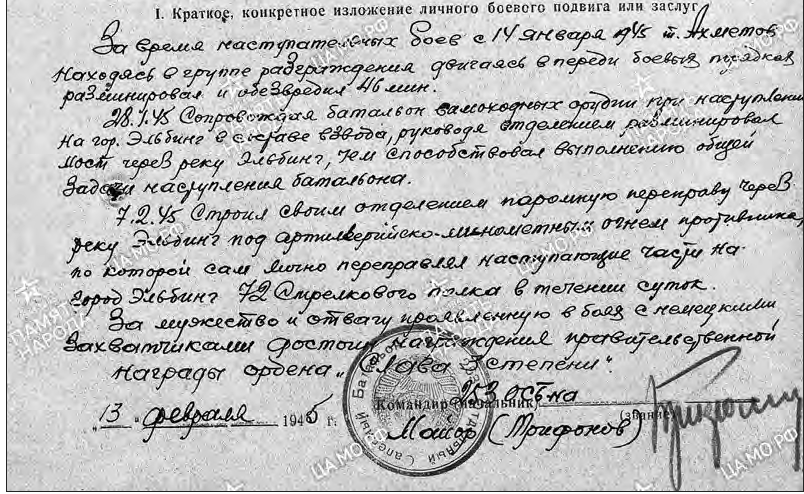 I. Краткое, конкретное изложение личного боевого подвига или заслуг
За время наступательных боев с 14 января 1945 т. Ахметов
находясь в группе разграждения двигаясь впереди боевых порядков
разминировал и обезвредил 46 мин.
28.1.45 Сопровождая батальон самоходных орудий при наступлении
на гор. Эльбинг в составе взвода, руководя отделением разминировал
мост через реку Эльбинг, чем способствовал выполнению общей
задачи наступления батальона.
7.2.45 Строил своим отделением паромную переправу через
реку Эльбинг под артилерийско-минометным огнем противника,
по которой сам лично переправлял наступающие части на
город Эльбинг 72 Стрелкового полка в течении суток.
За мужество и отвагу проявленную в боях с немецкими
захватчиками достоин награждения правительственной
награды ордена „Слава 3 степени".
Командир (начальник) 253 ОСБ-на
„13" февраля 1945 г.
(звание)
Майор (Трифонов)
ПАМЯТЬ НАРОДА
ЦАМО.РФ